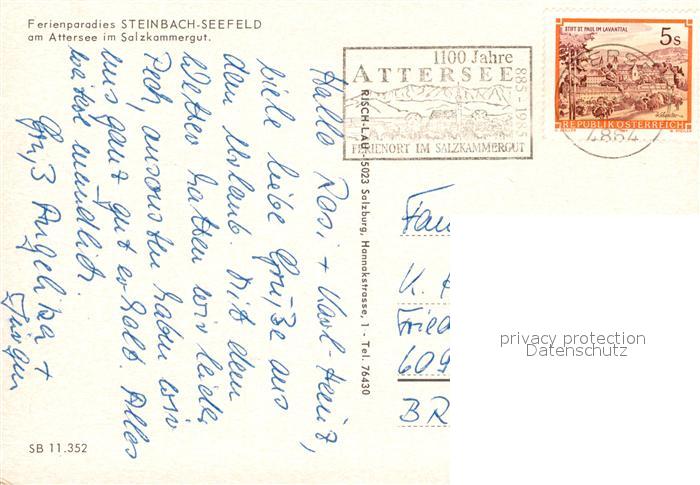 Ferienparadies STEINBACH-SEEFELD
am Attersee im Salzkammergut.
1100 Jahre
ATTERSEE
885-1985
FERIENORT IM SALZKAMMERGUT
STIFT ST. PAUL IM LAVANTTAL
5s
REPUBLIK ÖSTERREICH
4864
Hallo Rosi + Karl-Heinz,
viele liebe Grüße aus
dem Urlaub. Mit dem
Wetter hatten wir leider
Pech, ansonsten haben wir
uns ganz gut erholt. Alles
weitere mündlich.
Gruß Angelika +
Jürgen
RISCH-LAU, 5023 Salzburg, Hannakstrasse, 1 - Tel. 76430
Fam
K.
Fried
609
BR
privacy protection
Datenschutz
SB 11.352